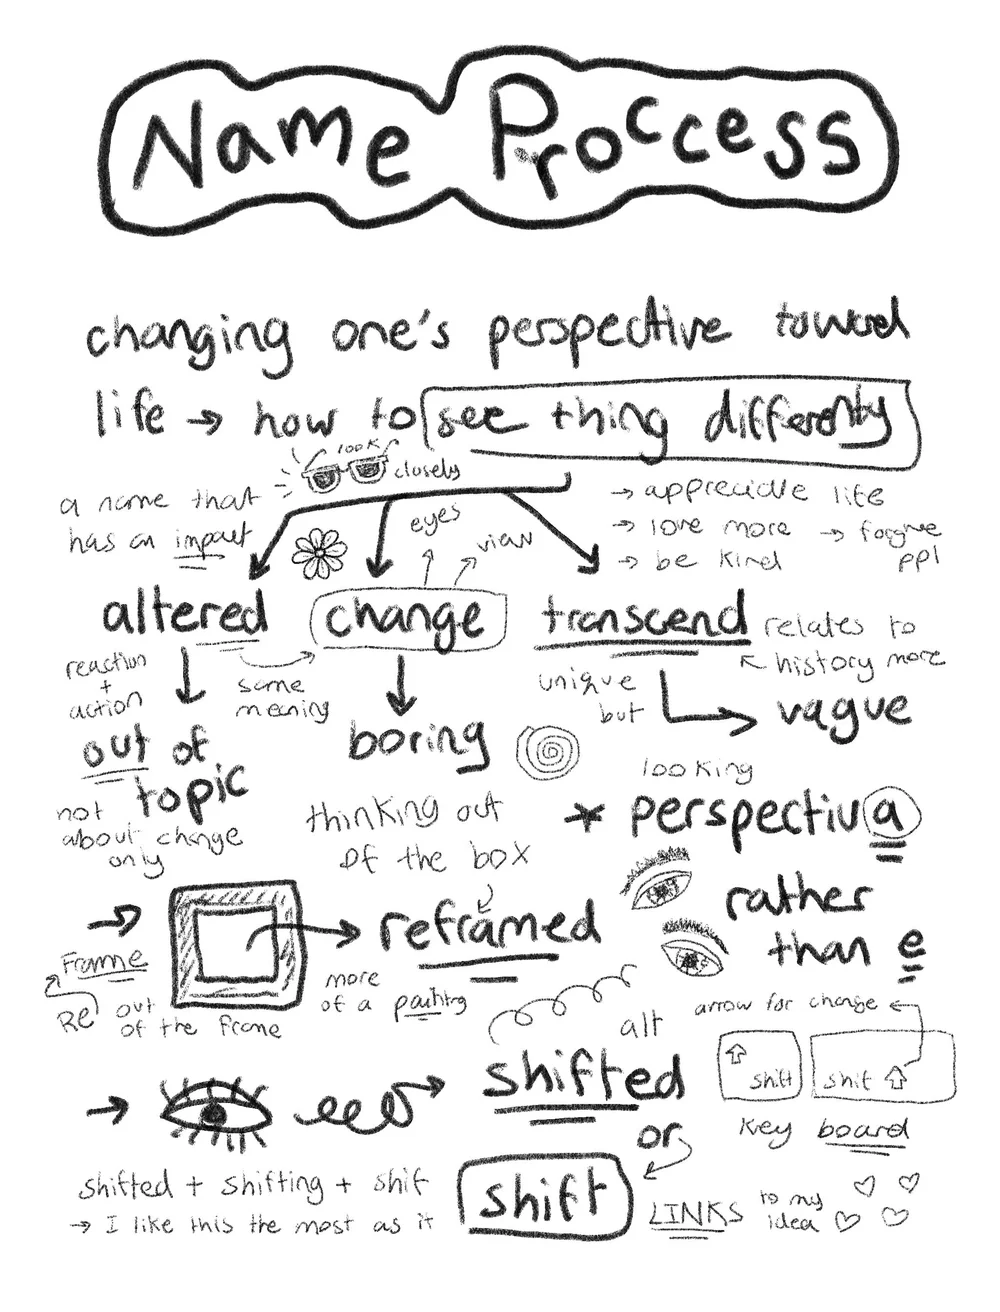 Name Proccess
changing one's perspective toward
life → how to see thing differently
look closely
a name that
has an impact
→ appreciate life
→ love more → forgive ppl
→ be kind
eyes
view
altered
change
transcend
relates to
history more
reaction
+
action
same
meaning
unique
but
vague
out of
topic
boring
not
about change
only
looking
* perspectiva
rather
than e
thinking out
of the box
reframed
Frame
Re
out
of the frame
more
of a painting
arrow for change
alt
shifted
⇧ shift
shit ⇧
key board
or
shift
shifted + shifting + shif
→ I like this the most as it
LINKS to my
idea